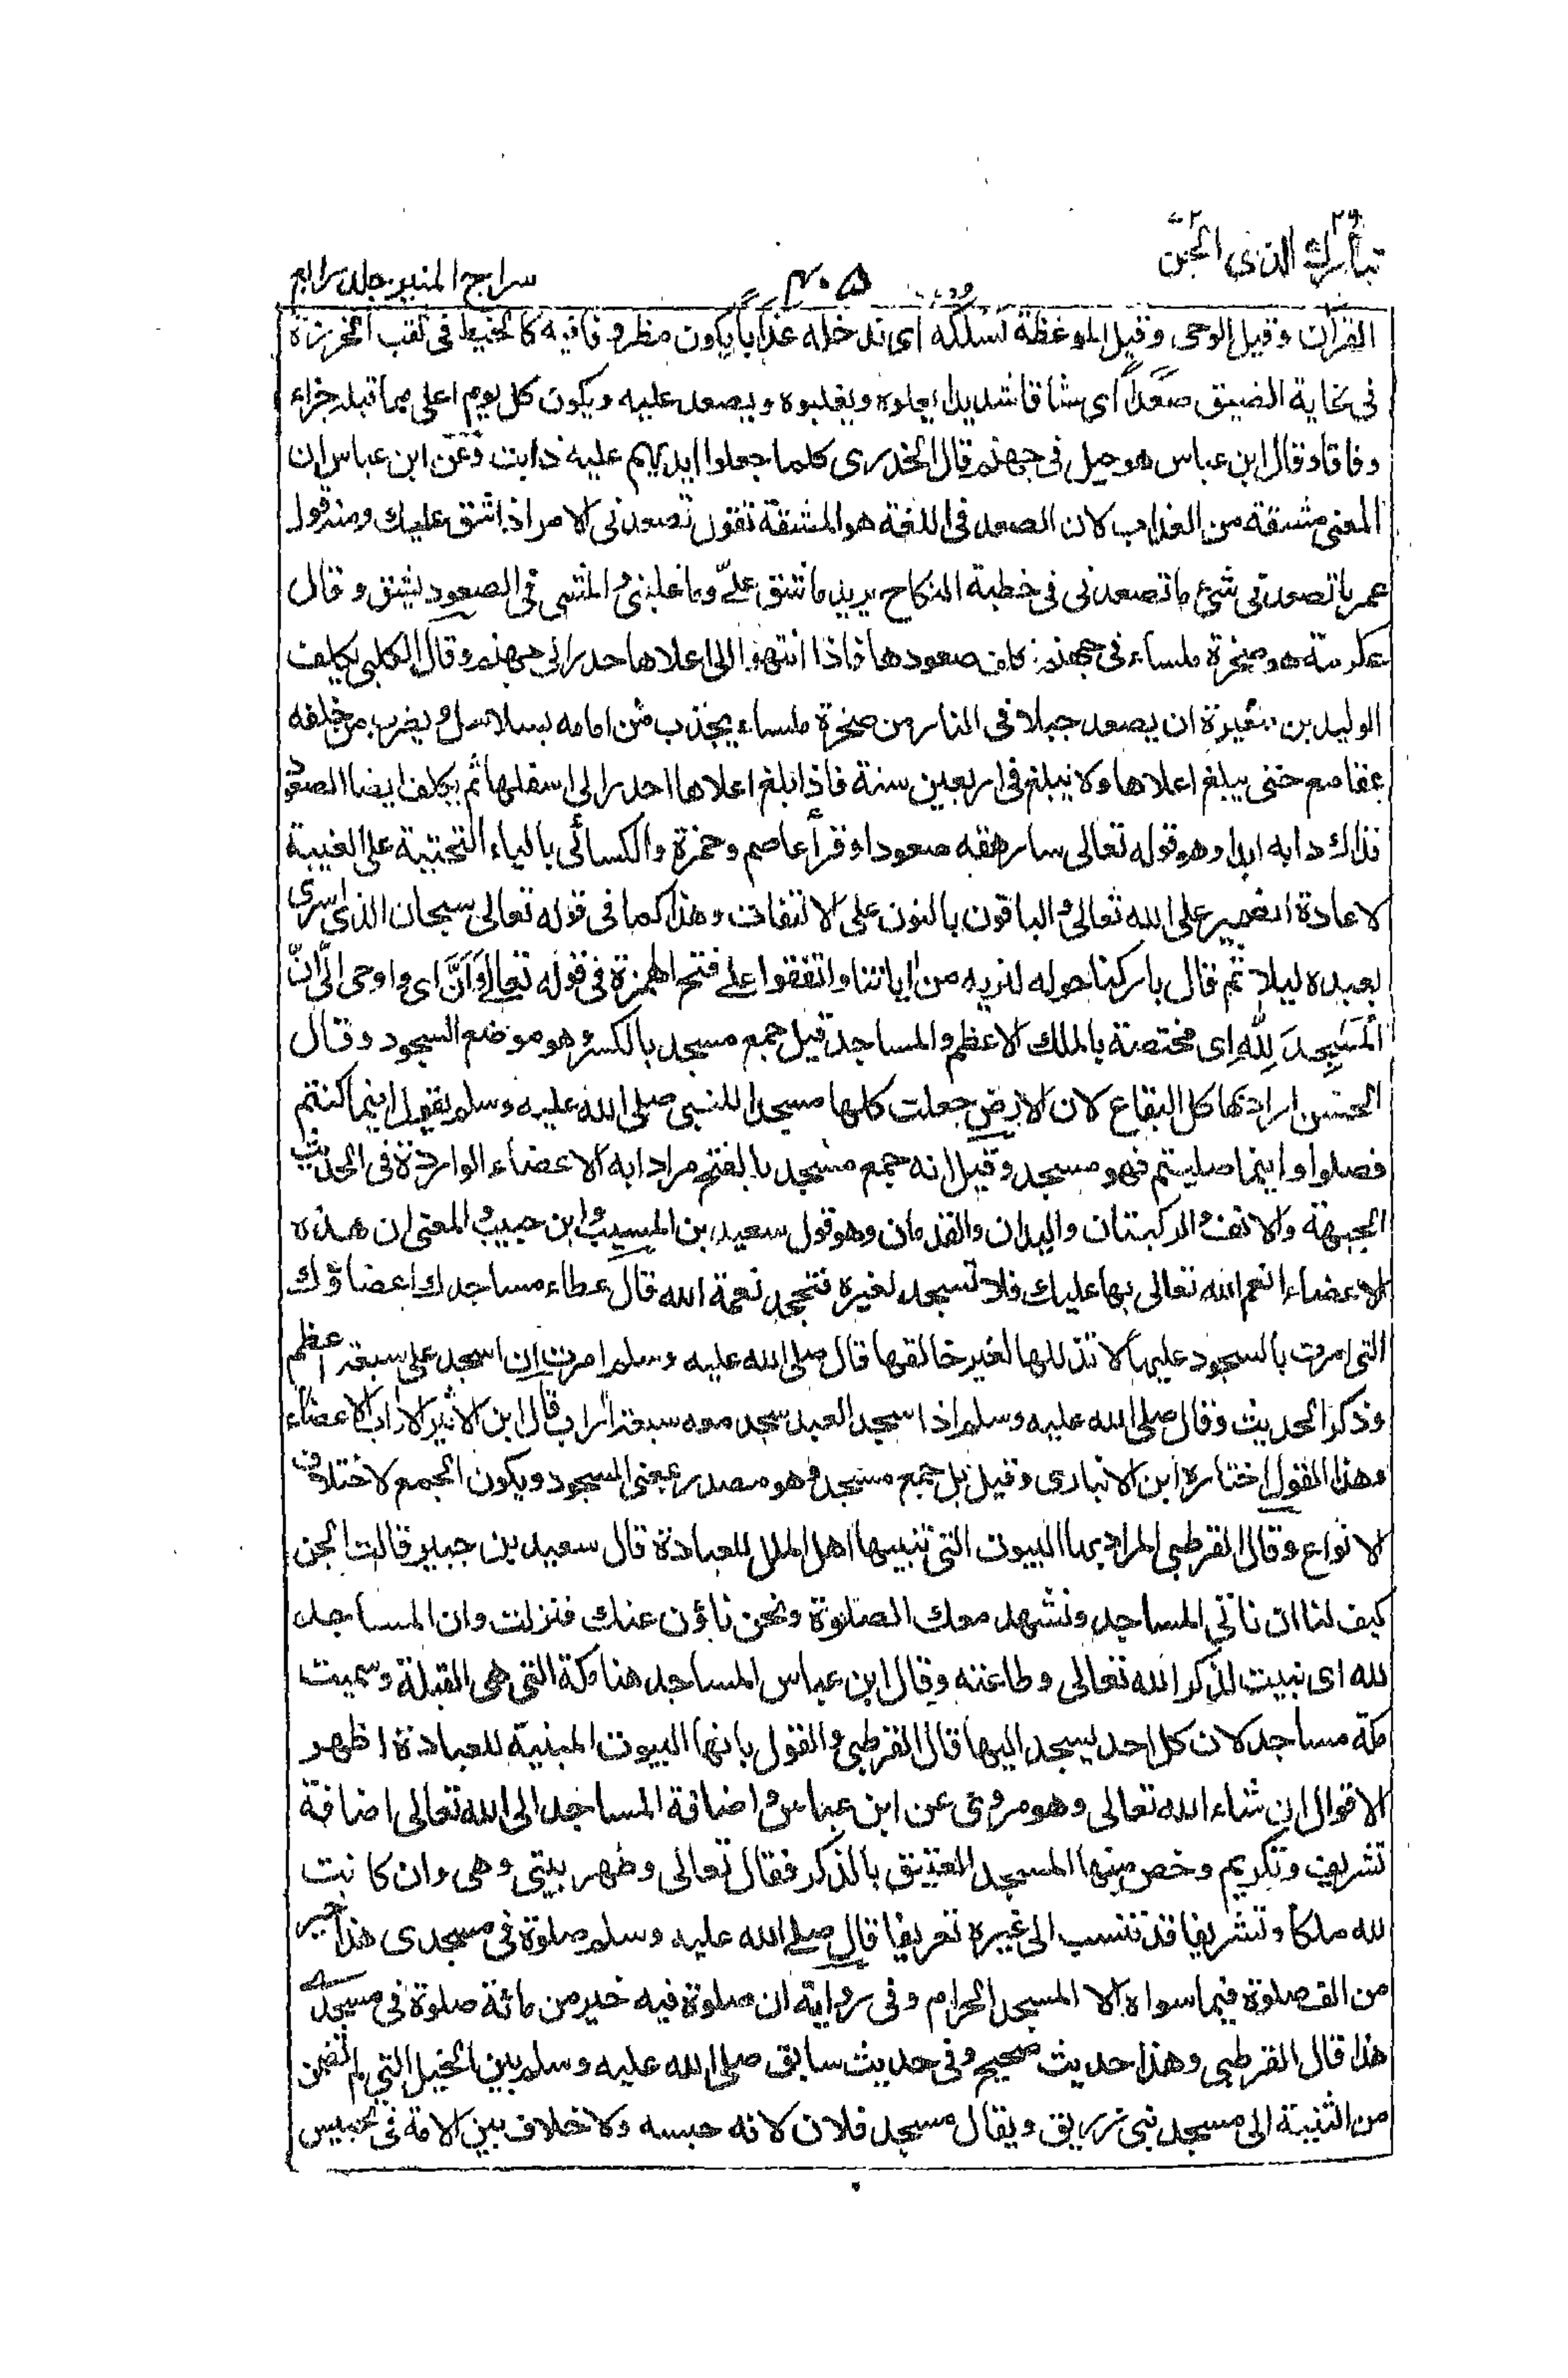 تبارك الذى ٢٩ الجن ٧٢
٤٠٥
سراج المنير جلد رابع
القرآن وقيل الوحى وقيل الموعظة نَسْلُكْهُ اى ندخله عَذَاباً يكون مظروفا فيه كالخيط فى ثقب الخرزة
فى غاية الضيق صَعَداً اى شاقا شديدا يعلوه ويغلبوه ويصعد عليه ويكون كل يوم اعلى مما قبله جزاء
وفاقا وقال ابن عباس هو جبل فى جهنم قال الخدرى كلما جعلوا ايديهم عليه ذابت وعن ابن عباس ان
المعنى مشقة من العذاب لان الصعد فى اللغة هو المشقة تقول تصعدنى الامر اذا شق عليك ومنه قول
عمر ما تصعدنى شئ ما تصعدنى فى خطبة النكاح يريد ما شق علىّ وما غلبنى والمشى فى الصعود يشق وقال
عكرمة هو صخرة ملساء فى جهنم يكلف صعودها فاذا انتهوا الى اعلاها حدر الى جهنم وقال الكلبى يكلف
الوليد بن مغيرة ان يصعد جبلا فى النار من صخرة ملساء يجذب من امامه بسلاسل ويضرب من خلفه
بمقامع حتى يبلغ اعلاها ولا يبلغ فى اربعين سنة فاذا بلغ اعلاها احدر الى اسفلها ثم يكلف ايضا الصعود
فذاك دابه ابدا وهو قوله تعالى سارهقه صعودا وقرأ عاصم وحمزة والكسائى بالياء التحتية على الغيبة
لاعادة الضمير على الله تعالى والباقون بالنون على الالتفات وهذا كما فى قوله تعالى سبحان الذى اسرى
بعبده ليلا ثم قال باركنا حوله لنريه من اياتنا واتفقوا على فتح الهمزة فى قوله تعالى وَاَنَّ اى واوحى الىّ انّ
الْمَسٰجِدَ لِلّٰهِ اى مختصة بالملك الاعظم والمساجد قيل جمع مسجد بالكسر وهو موضع السجود وقال
الحسن اراد بها كل البقاع لان الارض جعلت كلها مسجدا للنبى صلى الله عليه وسلم يقول اينما كنتم
فصلوا واينما صليتم فهو مسجد وقيل انه جمع مسجد بالفتح مرادا به الاعضاء الواردة فى الحديث
الجبهة والانف والركبتان واليدان والقدمان وهو قول سعيد بن المسيب وابن حبيب والمعنى ان هذه
الاعضاء انعم الله تعالى بها عليك فلا تسجد لغيره فتجحد نعمة الله قال عطاء مساجدك اعضاؤك
التى امرت بالسجود عليها لا تذللها لغير خالقها قال صلى الله عليه وسلم امرت ان اسجد على سبعة اعظم
وذكر الحديث وقال صلى الله عليه وسلم اذا اسجد العبد سجد معه سبعة اراب قال ابن الاثير الاراب الاعضاء
وهذا القول اختاره ابن الانبارى وقيل بل جمع مسجد وهو مصدر بمعنى السجود ويكون الجمع لاختلاف
الانواع وقال القرطبى المراد بها البيوت التى تبنيها اهل الملل للعبادة قال سعيد بن جبير قالت الجن
كيف لنا ان ناتى المساجد ونشهد معك الصلوة ونحن ناؤن عنك فنزلت وان المساجد
لله اى بنيت لذكر الله تعالى وطاعته وقال ابن عباس المساجد هنا مكة التى هى القبلة وسميت
مكة مساجد لان كل احد يسجد اليها قال القرطبى والقول بانها البيوت المبنية للعبادة اظهر
الاقوال ان شاء الله تعالى وهو مروى عن ابن عباس واضافة المساجد الى الله تعالى اضافة
تشريف وتكريم وخص منها المسجد العتيق بالذكر فقال تعالى وطهر بيتى وهى وان كانت
لله ملكا وتشريفا قد تنسب الى غيره تعريفا قال صلى الله عليه وسلم صلوة فى مسجدى هذا خير
من الف صلوة فيما سواه الا المسجد الحرام وفى رواية ان صلوة فيه خير من مائة صلوة فى مسجدى
هذا قال القرطبى وهذا حديث صحيح وفى حديث سابق صلى الله عليه وسلم بين الخيل التى لم تضمن
من الثنية الى مسجد بنى زريق ويقال مسجد فلان لانه حبسه ولا خلاف بين الامة فى تحبيس